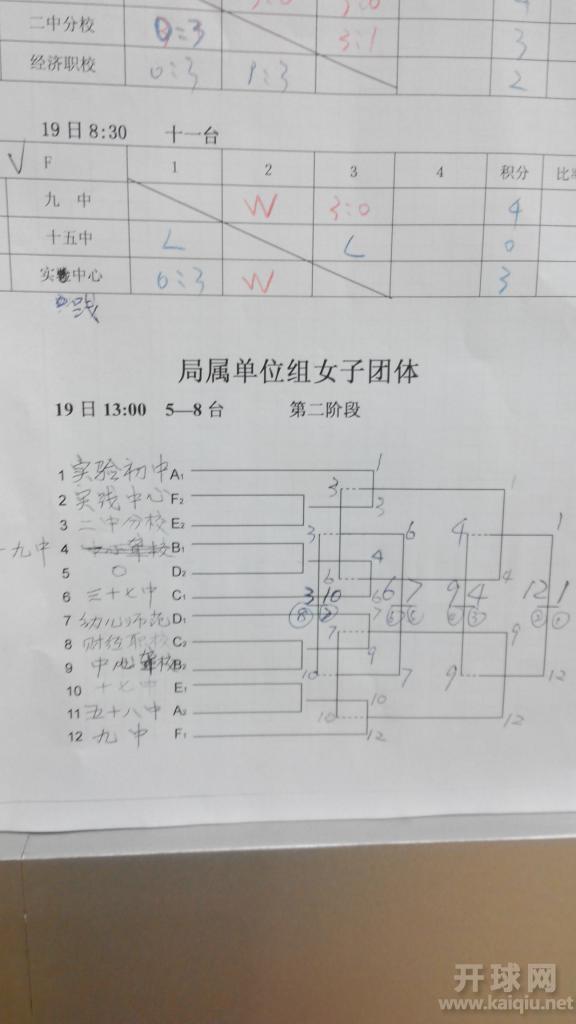 3:0 3:0 4
二中分校 0:3 3:1 3
经济职校 0:3 1:3 2
19日8:30 十一台
√ F 1 2 3 4 积分
九 中 W 3:0 4
十五中 L L 0
实验中心 0:3 W 3
实践
局属单位组女子团体
19日13:00 5—8台 第二阶段
1 实验初中 A1
2 实践中心 F2
3 二中分校 E2
一九中 4 B1
5 0 D2
6 三十七中 C1
7 幼儿师范 D1
8 财经职校 C2
9 中心军校 B2
10 十七中 E1
11 五十八中 A2
12 九中 F1
1 3 3 1
3 6 4 1
4 6 6 4
3 10 6 7 9 4 12 1
7 7 9 9
10 7 9 12
10 10 12 12
开球网
www.kaiqiu.net